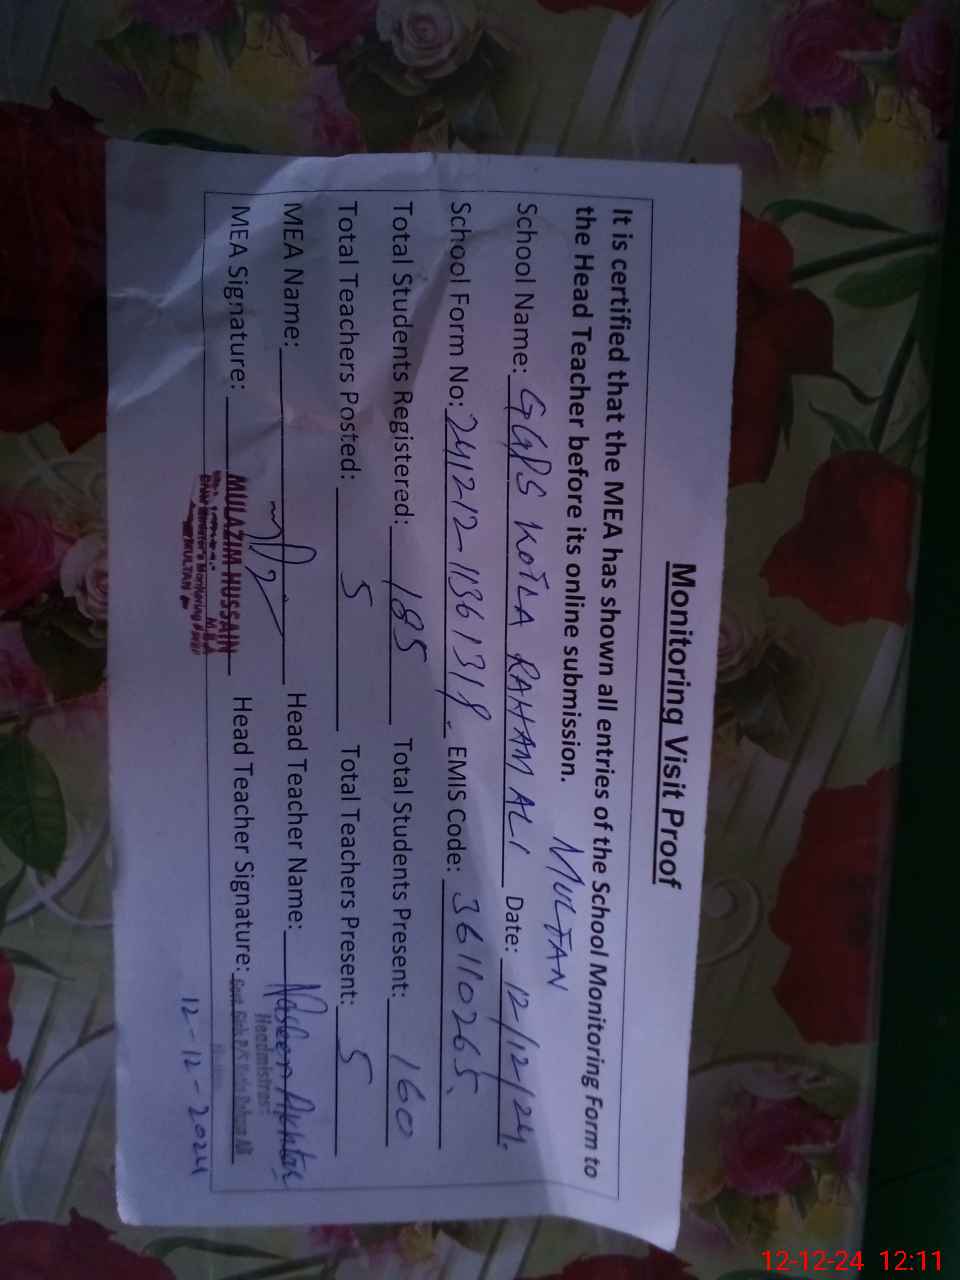 Monitoring Visit Proof
It is certified that the MEA has shown all entries of the School Monitoring Form to
the Head Teacher before its online submission.
MULTAN
School Name: GGPS KOTLA RAHAM ALI Date: 12/12/24.
School Form No: 241212-11361318. EMIS Code: 36110265.
Total Students Registered: 185 Total Students Present: 160
Total Teachers Posted: 5 Total Teachers Present: 5
MEA Name: Head Teacher Name: Nasleen Akhtar
MEA Signature: MULAZIM HUSSAIN Head Teacher Signature:
M.E.A
Headmistress
MULTAN
12-12-2024
12-12-24 12:11